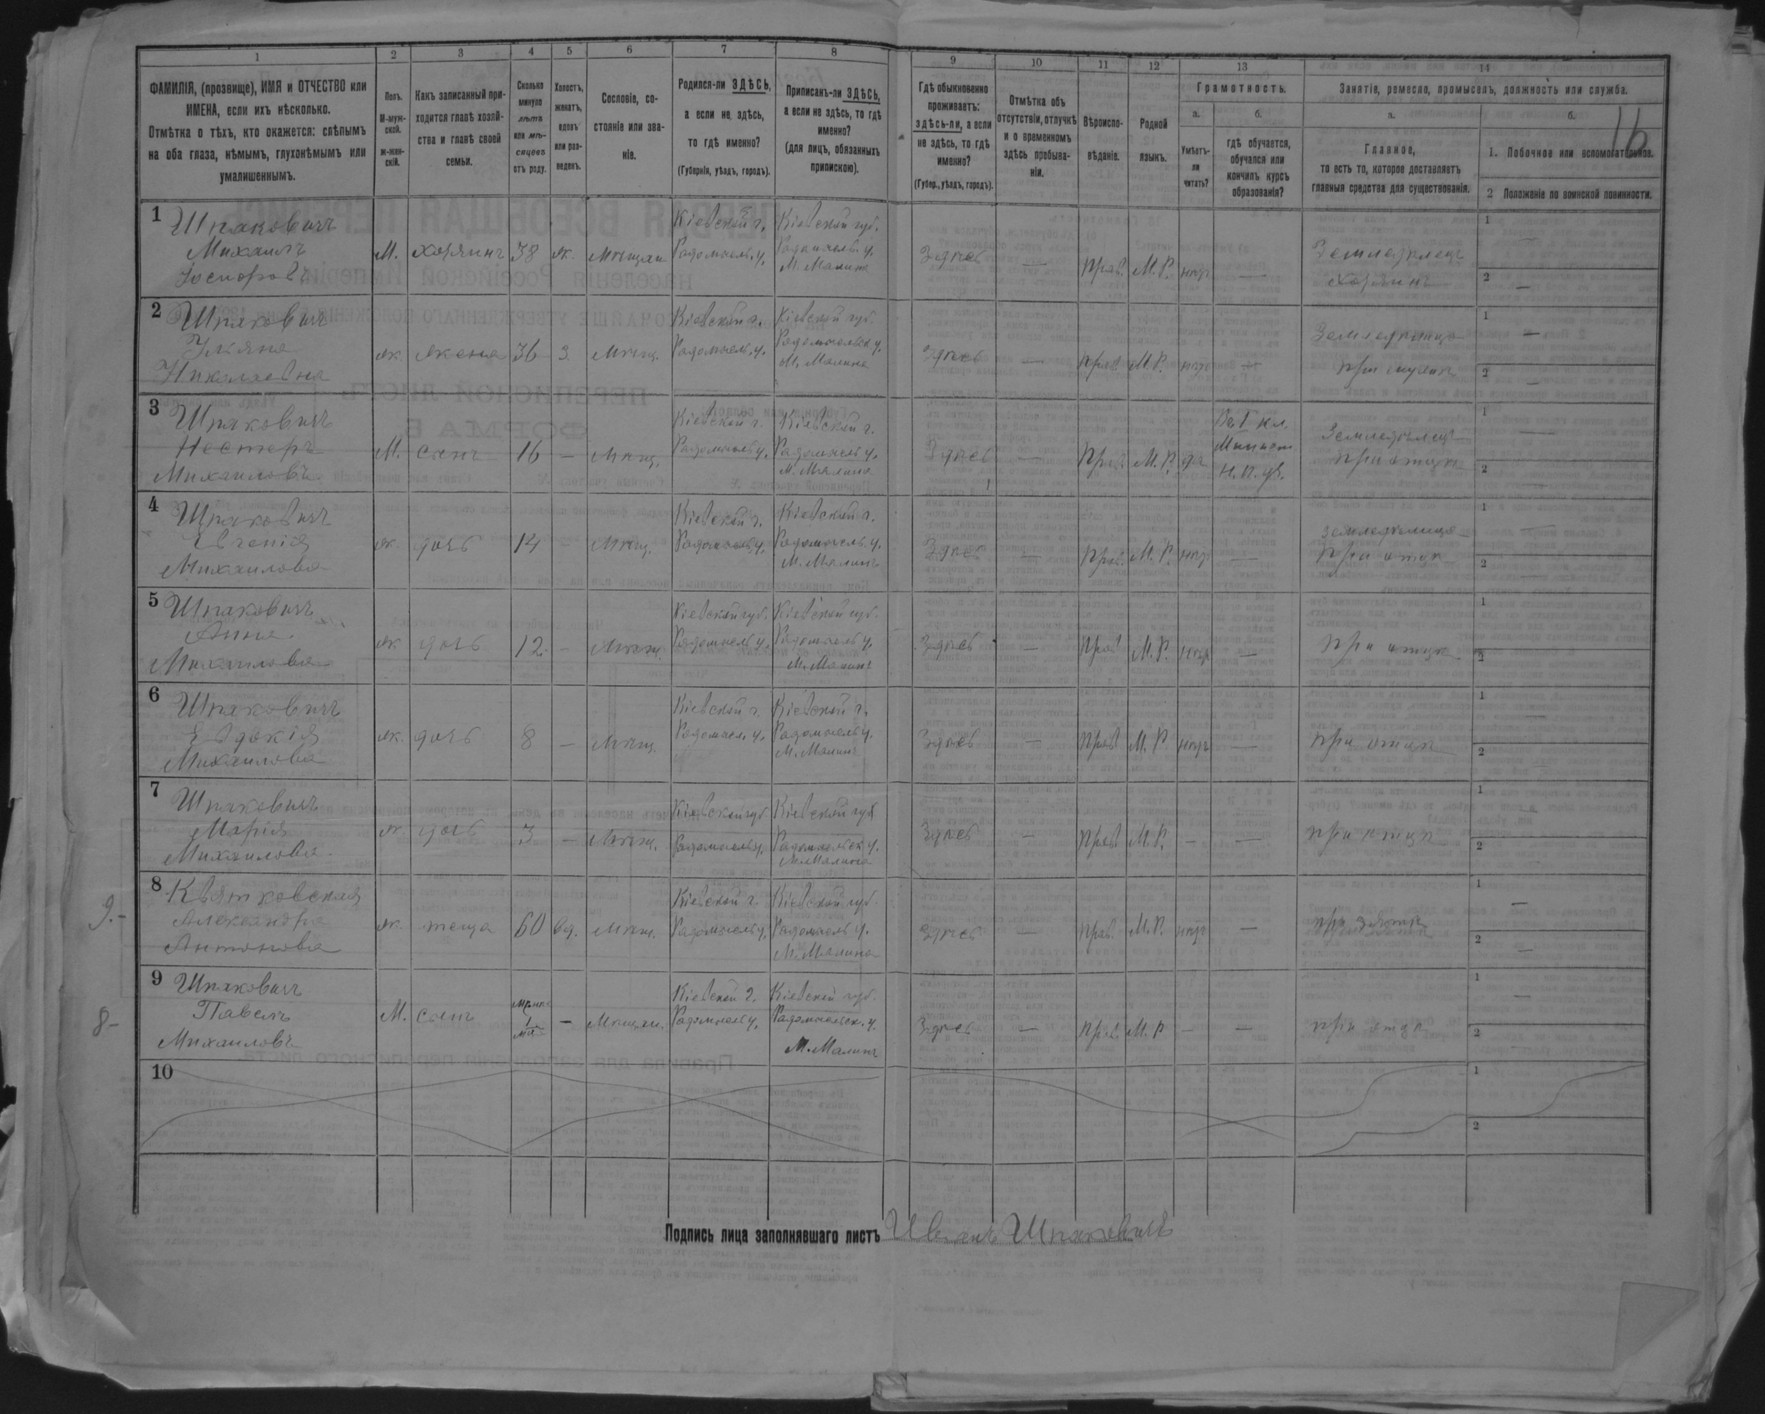 1 2 3 4 5 6 7 8 9 10 11 12 13 14
ФАМИЛІЯ, (прозвище), ИМЯ и ОТЧЕСТВО или
ИМЕНА, если ихъ нѣсколько.
Отмѣтка о тѣхъ, кто окажется: слѣпымъ
на оба глаза, нѣмымъ, глухонѣмымъ или
умалишеннымъ.
Полъ.
М-муж-
ской.
ж-жен-
скій.
Какъ записанный при-
ходится главѣ хозяй-
ства и главѣ своей
семьи.
Сколько
минуло
лѣтъ
или мѣ-
сяцевъ
отъ роду.
Холостъ,
женатъ,
вдовъ
или раз-
веденъ.
Сословіе, со-
стояніе или зва-
ніе.
Родился-ли ЗДѢСЬ,
а если не здѣсь,
то гдѣ именно?
(Губернія, уѣздъ, городъ).
Приписанъ-ли ЗДѢСЬ,
а если не здѣсь, то гдѣ
именно?
(для лицъ, обязанныхъ
припискою).
Гдѣ обыкновенно
проживаетъ:
здѣсь-ли, а если
не здѣсь, то гдѣ
именно?
(Губер., уѣздъ, городъ).
Отмѣтка объ
отсутствіи, отлучкѣ
и о временномъ
здѣсь пребыва-
ніи.
Вѣроиспо-
вѣданіе.
Родной
языкъ.
Грамотность.
а.
Умѣетъ-
ли
читать?
б.
гдѣ обучается,
обучался или
кончилъ курсъ
образованія?
Занятіе, ремесло, промыселъ, должность или служба.
а.
Главное,
то есть то, которое доставляетъ
главныя средства для существованія.
б.
1. Побочное или вспомогательное.
2 Положеніе по воинской повинности.
16
1 Шпаковичъ Кіевской г. Кіевской губ.
Михаилъ М. хозяинъ 38 ж. мѣщан Радомысль. у. Радомысль. у. Здѣсь — Прав. М. Р. нѣтъ — Земледѣлецъ 1 —
М. Малина хозяинъ 2 —
2 Шпаковичъ Кіевской г. Кіевской губ.
ж. жена 36 з мѣщ. Радомысль. у. Радомысльск у. Здѣсь — прав. М. Р. нѣтъ — 1 —
Николаевна М. Малина 2 —
3 Шпаковичъ Кіевской г. Кіевской г.
Нестеръ М. сынъ 16 — мѣщ. Радомысль у. Радомысль у. Здѣсь — Прав. М. Р. да Земледѣлецъ 1 —
Михаиловъ М. Малина Н. П. уч. при отцѣ 2 —
4 Шпаковичъ Кіевской г. Кіевской г.
Евгенія ж. дочь 14 — мѣщ. Радомысль у. Радомысль у. Здѣсь — прав. М. Р. нѣтъ — 1 —
Михаилова М. Малинъ при отцѣ 2 —
5 Шпаковичъ Кіевской губ. Кіевской губ.
Анна ж дочь 12 — мѣщ. Радомысль у. Радомысль у. Здѣсь — прав М. Р. нѣтъ — при отцѣ 1
Михаилова М. Малинъ 2
6 Шпаковичъ Кіевской г. Кіевской г.
Евдокія ж. дочь 8 — мѣщ. Радомысл. у. Радомысль у. Здѣсь — прав М. Р нѣтъ — при отцѣ 1 —
Михаилова М. Малинъ 2 —
7 Шпаковичъ Кіевской губ Кіевской губ
Марія ж дочь 3 — мѣщ. Радомысль у. Радомысльск у. Здѣсь — прав М. Р. — — при отцѣ 1 —
Михаилова М. Малина 2 —
9.- 8 Квятковская Кіевской г. Кіевской губ.
Александра ж. теща 60 вд. мѣщ. Радомысль у. Радомысль у. Здѣсь — прав. М. Р. нѣтъ — при зятѣ 1 —
Антонова М. Малина 2 —
8- 9 Шпаковичъ Кіевской г. Кіевской губ.
Павелъ М. сынъ — мѣщан. Радомысль у. Радомысльск. у. Здѣсь — прав. М. Р — — при отцѣ 1 —
Михаиловъ М. Малинъ 2 —
10 1
2
Подпись лица заполнявшаго листъ Иванъ Шпаковичъ